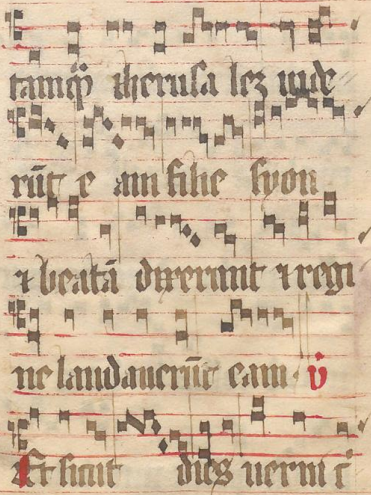 tamqȝ iherusalez uide
rūt e am filie syon
⁊ beatā dixerunt ⁊ regi
ne laudauerūt eam v̊
Et sicut dies uerni c̄